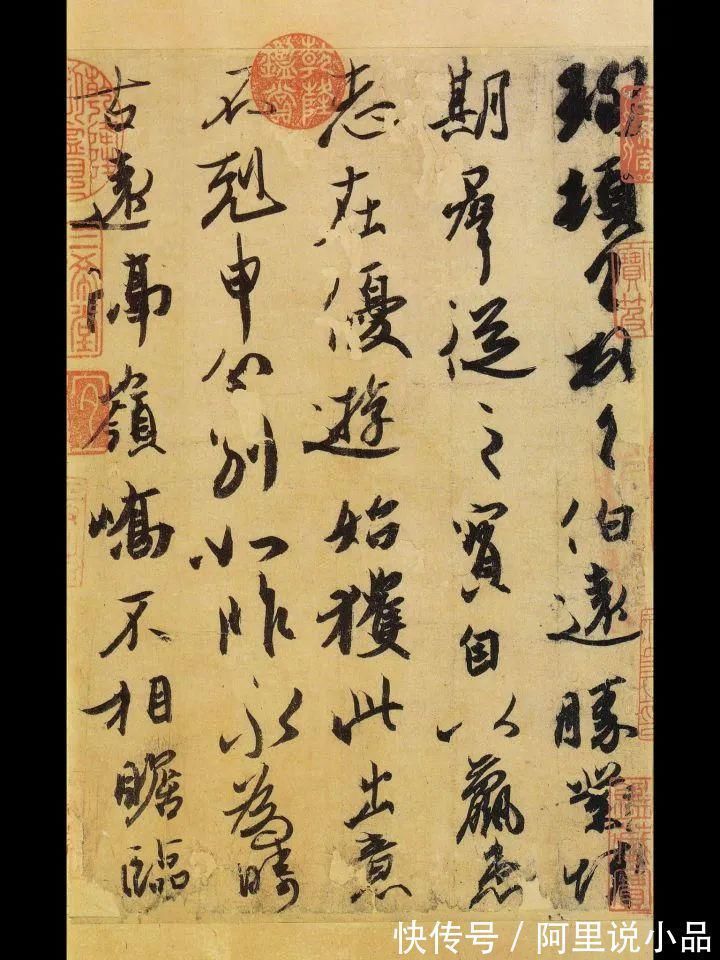 珣頓首頓首伯遠勝業情
期群從之寶自以羸患
志在優遊始獲此出意
不剋申分別如昨永為疇
古遠隔嶺嶠不相瞻臨
乾隆鑑賞
三希堂
快传号/阿里说小品